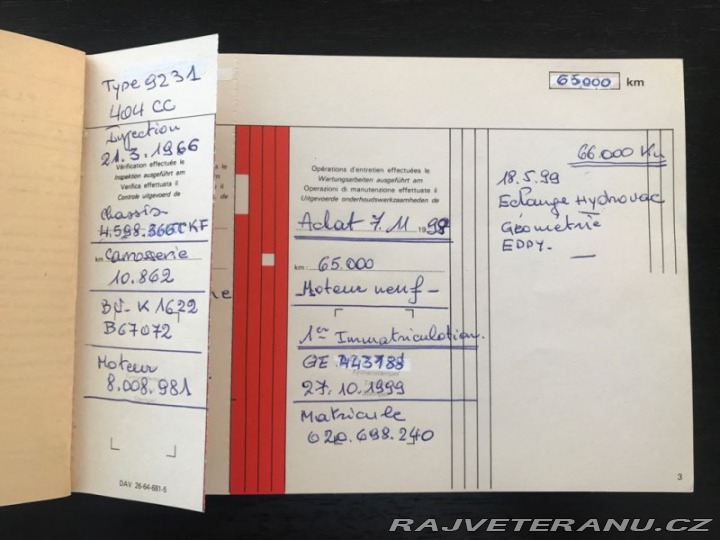 Type 9231
404 CC
Injection
21.3.1966
Vérification effectuée le
Inspektion ausgeführt am
Verifica effettuata il
Controle uitgevoerd de
Chassis
4.598.366 CKF
km Carrosserie
10.862
BV- K 1622
B67072
Moteur
8.008.981
DAV. 26-64-681-5
65.000 km
Opérations d'entretien effectuées le
Wartungsarbeiten ausgeführt am
Operazioni di manutenzione effettuate il
Uitgevoerde onderhoudswerkzaamheden de
Achat 7.11 1998
km 65.000
Moteur neuf -
1er Immatriculation.
GE 443788
27.10.1999
Matricule
620.698.240
66.000 Km
18.5.99
Echange Hydrovac
Géometrie
EDDY-
3
RAJVETERANU.CZ